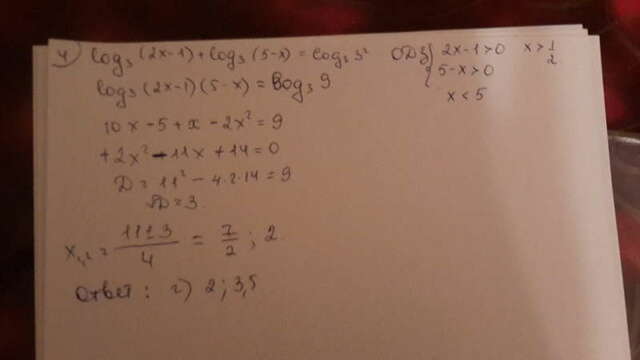 4) log₃(2x-1)+log₃(5-x)=log₃3² ОДЗ { 2x-1>0 x>1/2
log₃(2x-1)(5-x)=log₃9 5-x>0
x<5
10x-5+x-2x²=9
+2x²-11x+14=0
D=11²-4·2·14=9
√D=3
x₁,₂=(11±3)/4=7/2; 2
Ответ: г) 2; 3,5